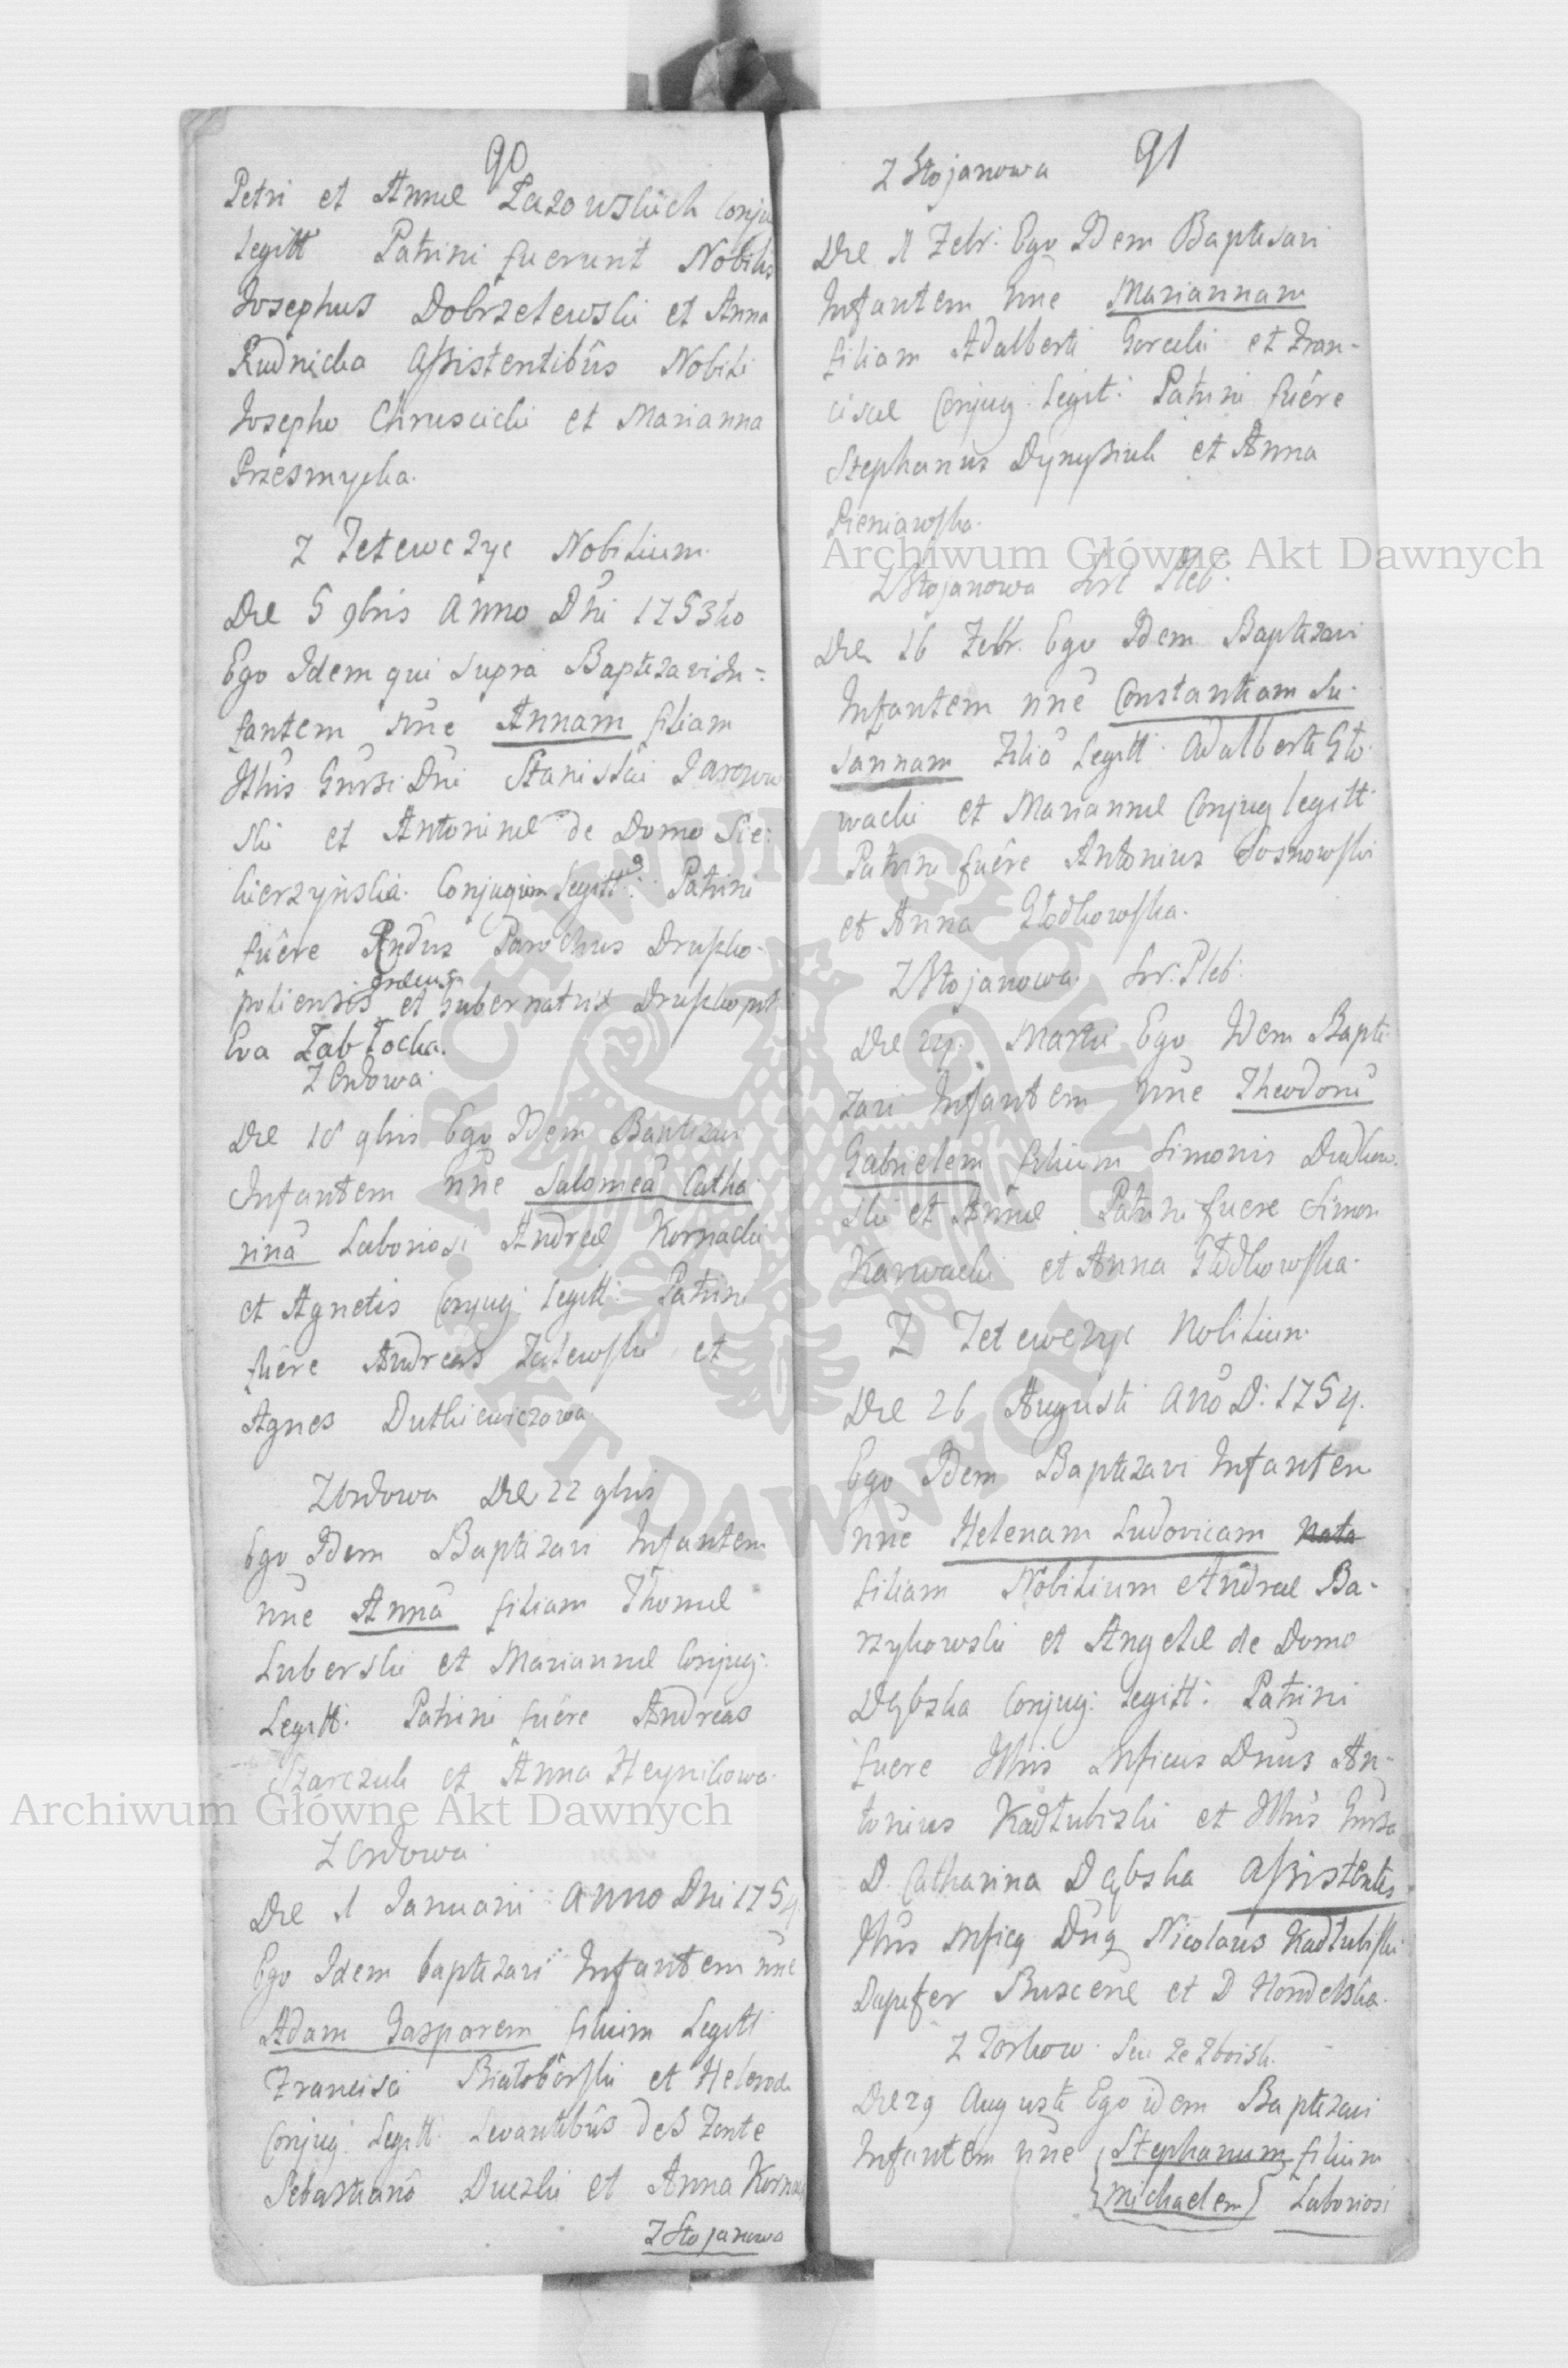 90
Petri et Annæ Łazowskich Conju
Legitt Patrini fuerunt Nobilis
Josephus Dobrzelewski et Anna
Rudnicka Assistentibus Nobili
Josepho Chruscicki et Marianna
Przesmycka.
Z Tetewczyc Nobilium.
Die 5 9bris Anno Dni 1753tio
Ego Idem qui supra Baptizavi In-
fantem nne Annam filiam
Stanislai
et Antoninæ de Domo Sie-
kierzyńska. Conjugum Legitt: Patrini
fuêre Rndus Parochus Druszko-
poliensis et Gubernatrix Druszkopol
Eva Zabłocka.
Z Ordowa
Die 18 9bris Ego Idem Baptizavi
Infantem nne Salomeã Catha-
rinã Laboriosi Andreæ Kornacki
et Agnetis Conjug: Legitt: Patrini
fuêre Andreas Zalewski et
Agnes Dutkiewiczowa
Z Ordowa Die 22 9bris
Ego Idem Baptizavi Infantem
nne Annã filiam Thomæ
Luberski et Mariannæ Conjug:
Legitt: Patrini fuêre Andreas
Starczuk et Anna Heynikowa.
Z Ordowa
Die 1 Januarii Anno Dni 1754
Ego Idem baptizavi Infantem nne
Adam Gasparem filium Legitt
Francisci Białoborski et
Conjug: Legitt: Levantibus de S Fonte
Sebastiano Duczki et Anna
Z Stojanowa
Z Stojanowa 91
Die 1 Febr: Ego Idem Baptisavi
Infantem nne Mariannam
filiam Adalberti Gorecki et Fran-
ciscæ Conjug: Legit: Patrini fuêre
Stephanus et Anna
Pieniawska.
Z Stojanowa Pleb:
Die 16 Febr. Ego Idem Baptizavi
Infantem nne Constantiam Su-
sannam Filiã Legitt: Adalberti Gło-
wacki et Mariannæ Conjug legitt:
Patrini fuêre Antonius Sosnowski
et Anna Głodkowska.
Z Stojanowa. Pleb:
Die Martii Ego Idem Bapti-
zavi Infantem nne Theodorũ
Gabrielem filium Simonis Dudkow-
ski et Annæ Patrini fuere Simon
Karwacki et Anna Głodkowska.
Z Tetewczyc Nobilium.
Die 26 Augusti Año D: 1754.
Ego Idem Baptizavi Infantem
nne Helenam Ludovicam Nata
filiam Nobilium Andreæ Ba-
rzykowski et Angelæ de Domo
Dębska Conjug: Legitt: Patrini
fuere Illris Mficus Dnus An-
tonius Kadłubiski et
D. Catharina Dębska Assistentes
Dnus Nicolaus Kadłubiski
Dapifer Buscenæ et D
Z Torkow
Die 29 Auguste Ego idem Baptizavi
Infantem nne Stephanum filium
Michaelem Laboriosi
Archiwum Główne Akt Dawnych
Archiwum Główne Akt Dawnych
ARCHIWUM GŁÓWNE AKT DAWNYCH